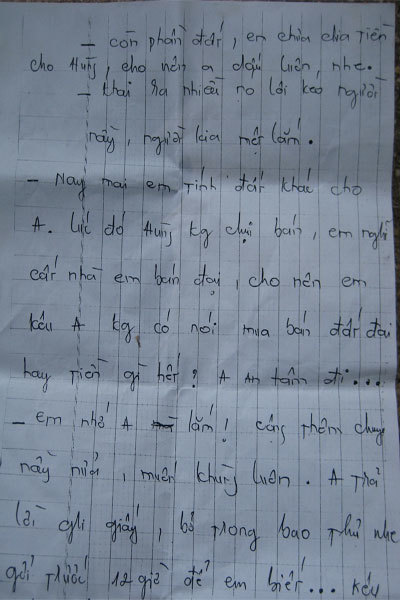 - còn phần đất, em chia chia tiền
cho Hưng, cho nên a dấu luôn, nhe.
- khai ra nhiều nó lôi kéo người
nầy, người kia mệt lắm.
- Nay mai em tính đất khác cho
A. lúc đó Hưng kg chịu bán, em nghĩ
cất nhà em bán đại, cho nên em
kêu A kg có nói mua bán đất đai
hay tiền gì hết? A An tâm đi...
- em nhớ A lắm! cộng thêm chuyện
nầy nữa, muốn khùng luôn. A Trả
lời ghi giấy, bỏ trong bao thư nhe
gởi trước 12 giờ để em biết... kêu